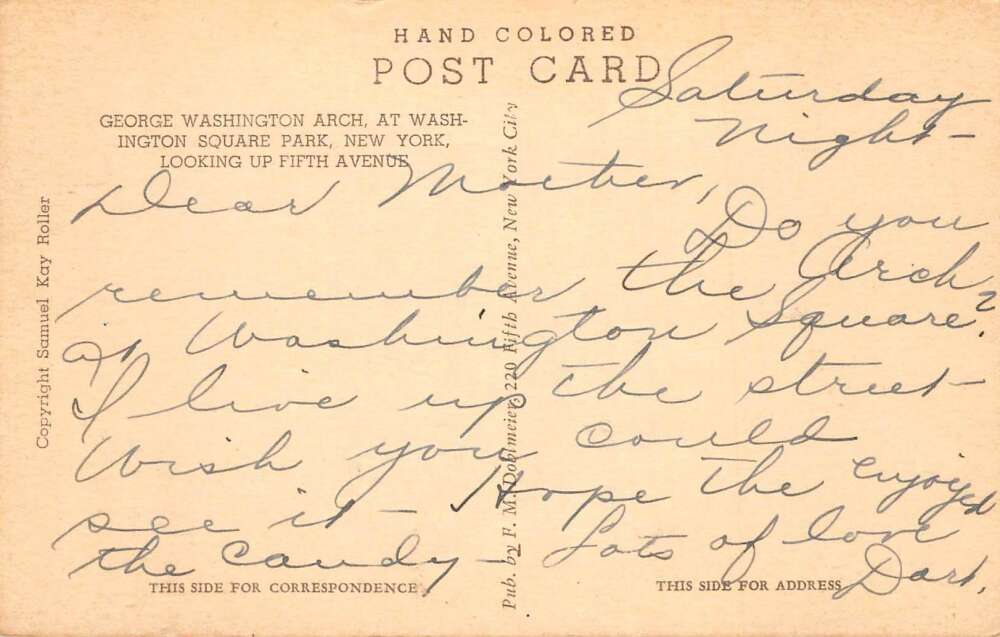 HAND COLORED
POST CARD
GEORGE WASHINGTON ARCH, AT WASH-
INGTON SQUARE PARK, NEW YORK,
LOOKING UP FIFTH AVENUE
Copyright Samuel Kay Roller
Pub. by F. M. Doblmeier, 220 Fifth Avenue, New York City
Saturday
Night-
Dear Mother,
Do you
remember the Arch
at Washington Square?
I live up the street-
Wish you could
see it - Hope the enjoyed
the candy - Lots of love
THIS SIDE FOR CORRESPONDENCE
THIS SIDE FOR ADDRESS